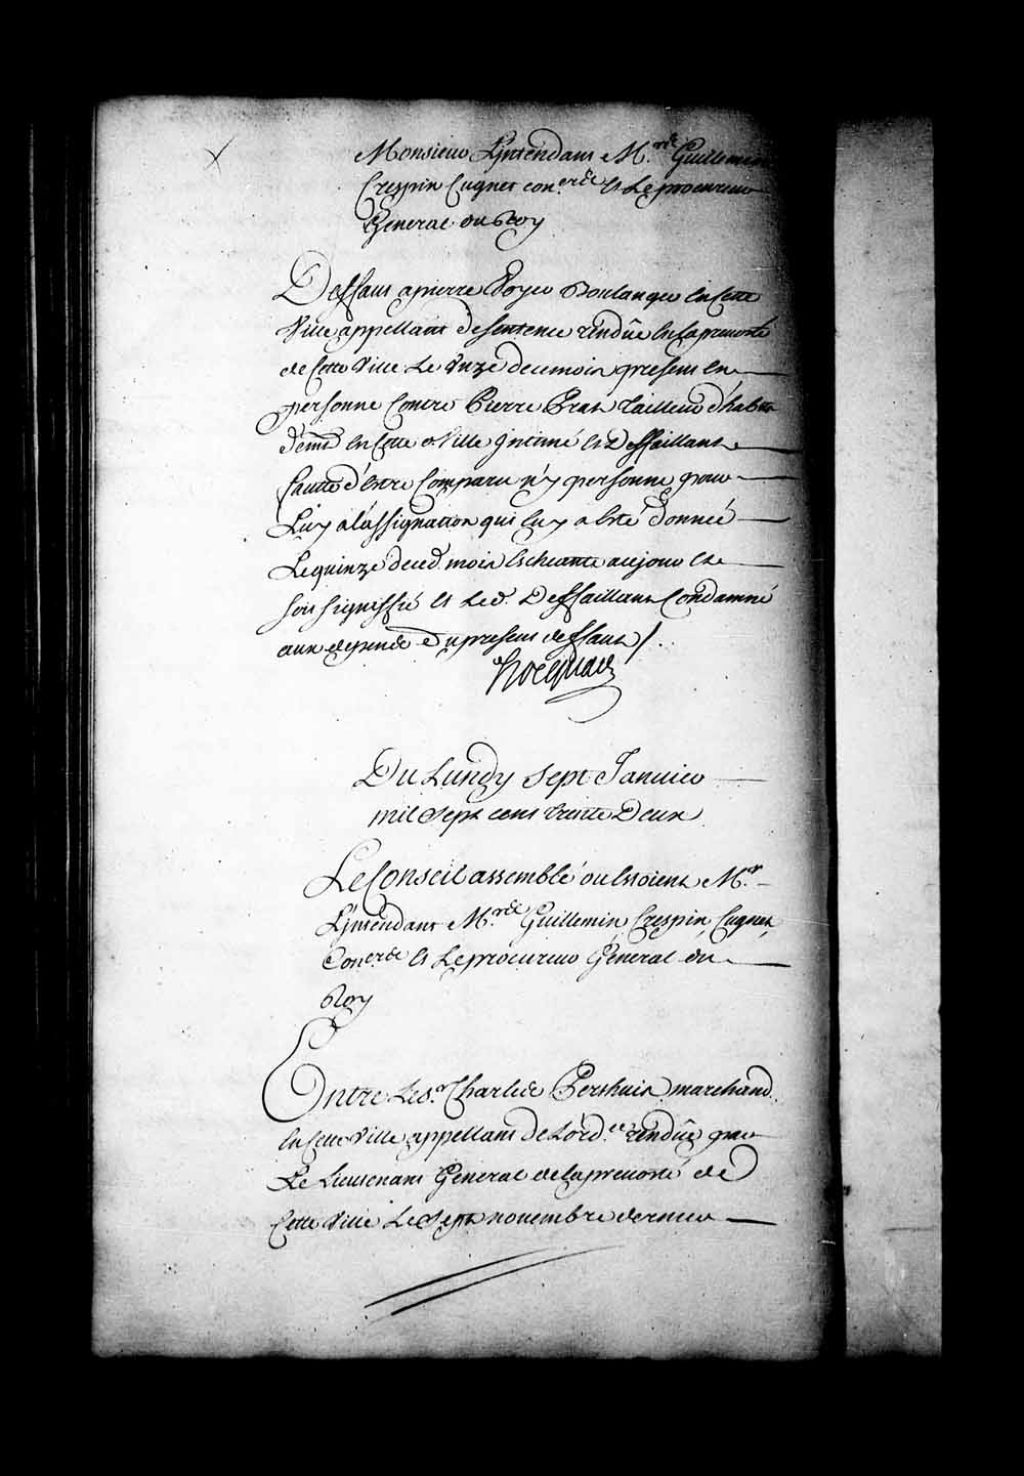 Monsieur L'Intendant M.rs Guillemin
Crespin Cugnet con.ers et Le procureur
General du Roy
Deffaut a pierre Voyer Boulanger en Cette
Ville appellant de sentence rendüe en la prevosté
de Cette Ville Le Unze de ce mois present en
personne Contre Pierre Prat Tailleur d'habits
dem.t en Cette Ville Intimé et Deffaillant
fautte d'Estre Comparu n'y personne pour
Luy a l'assignation qui luy a Esté Donneé
Le quinze du ced. mois Escheante au jour et
soit signiffié et Led. Deffaillant Condamné
aux depends du present deffaut /.
Hocquart
Du Lundy Sept Janvier
mil Sept cens trente Deux
Le Conseil assemblé ou Estoient M.r
L'Intendant M.rs Guillemin, Crespin, Cugnet,
Con.ers et Le procureur General du
Roy
Entre Le s.r Charles Perthuis marchand
en Cette Ville appellant de L'ord.ce rendüe par
Le Lieutenant General de la prevosté de
Cette Ville Le Sept novembre dernier